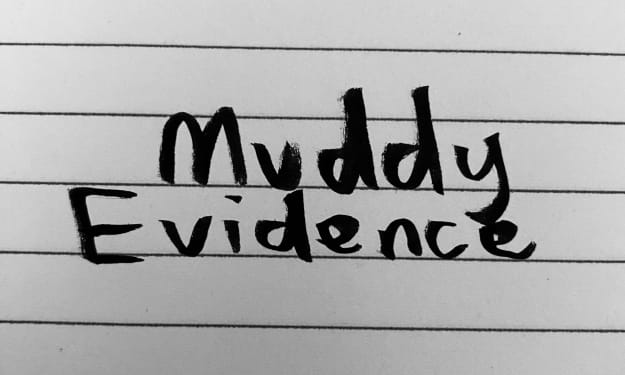 Muddy
Evidence